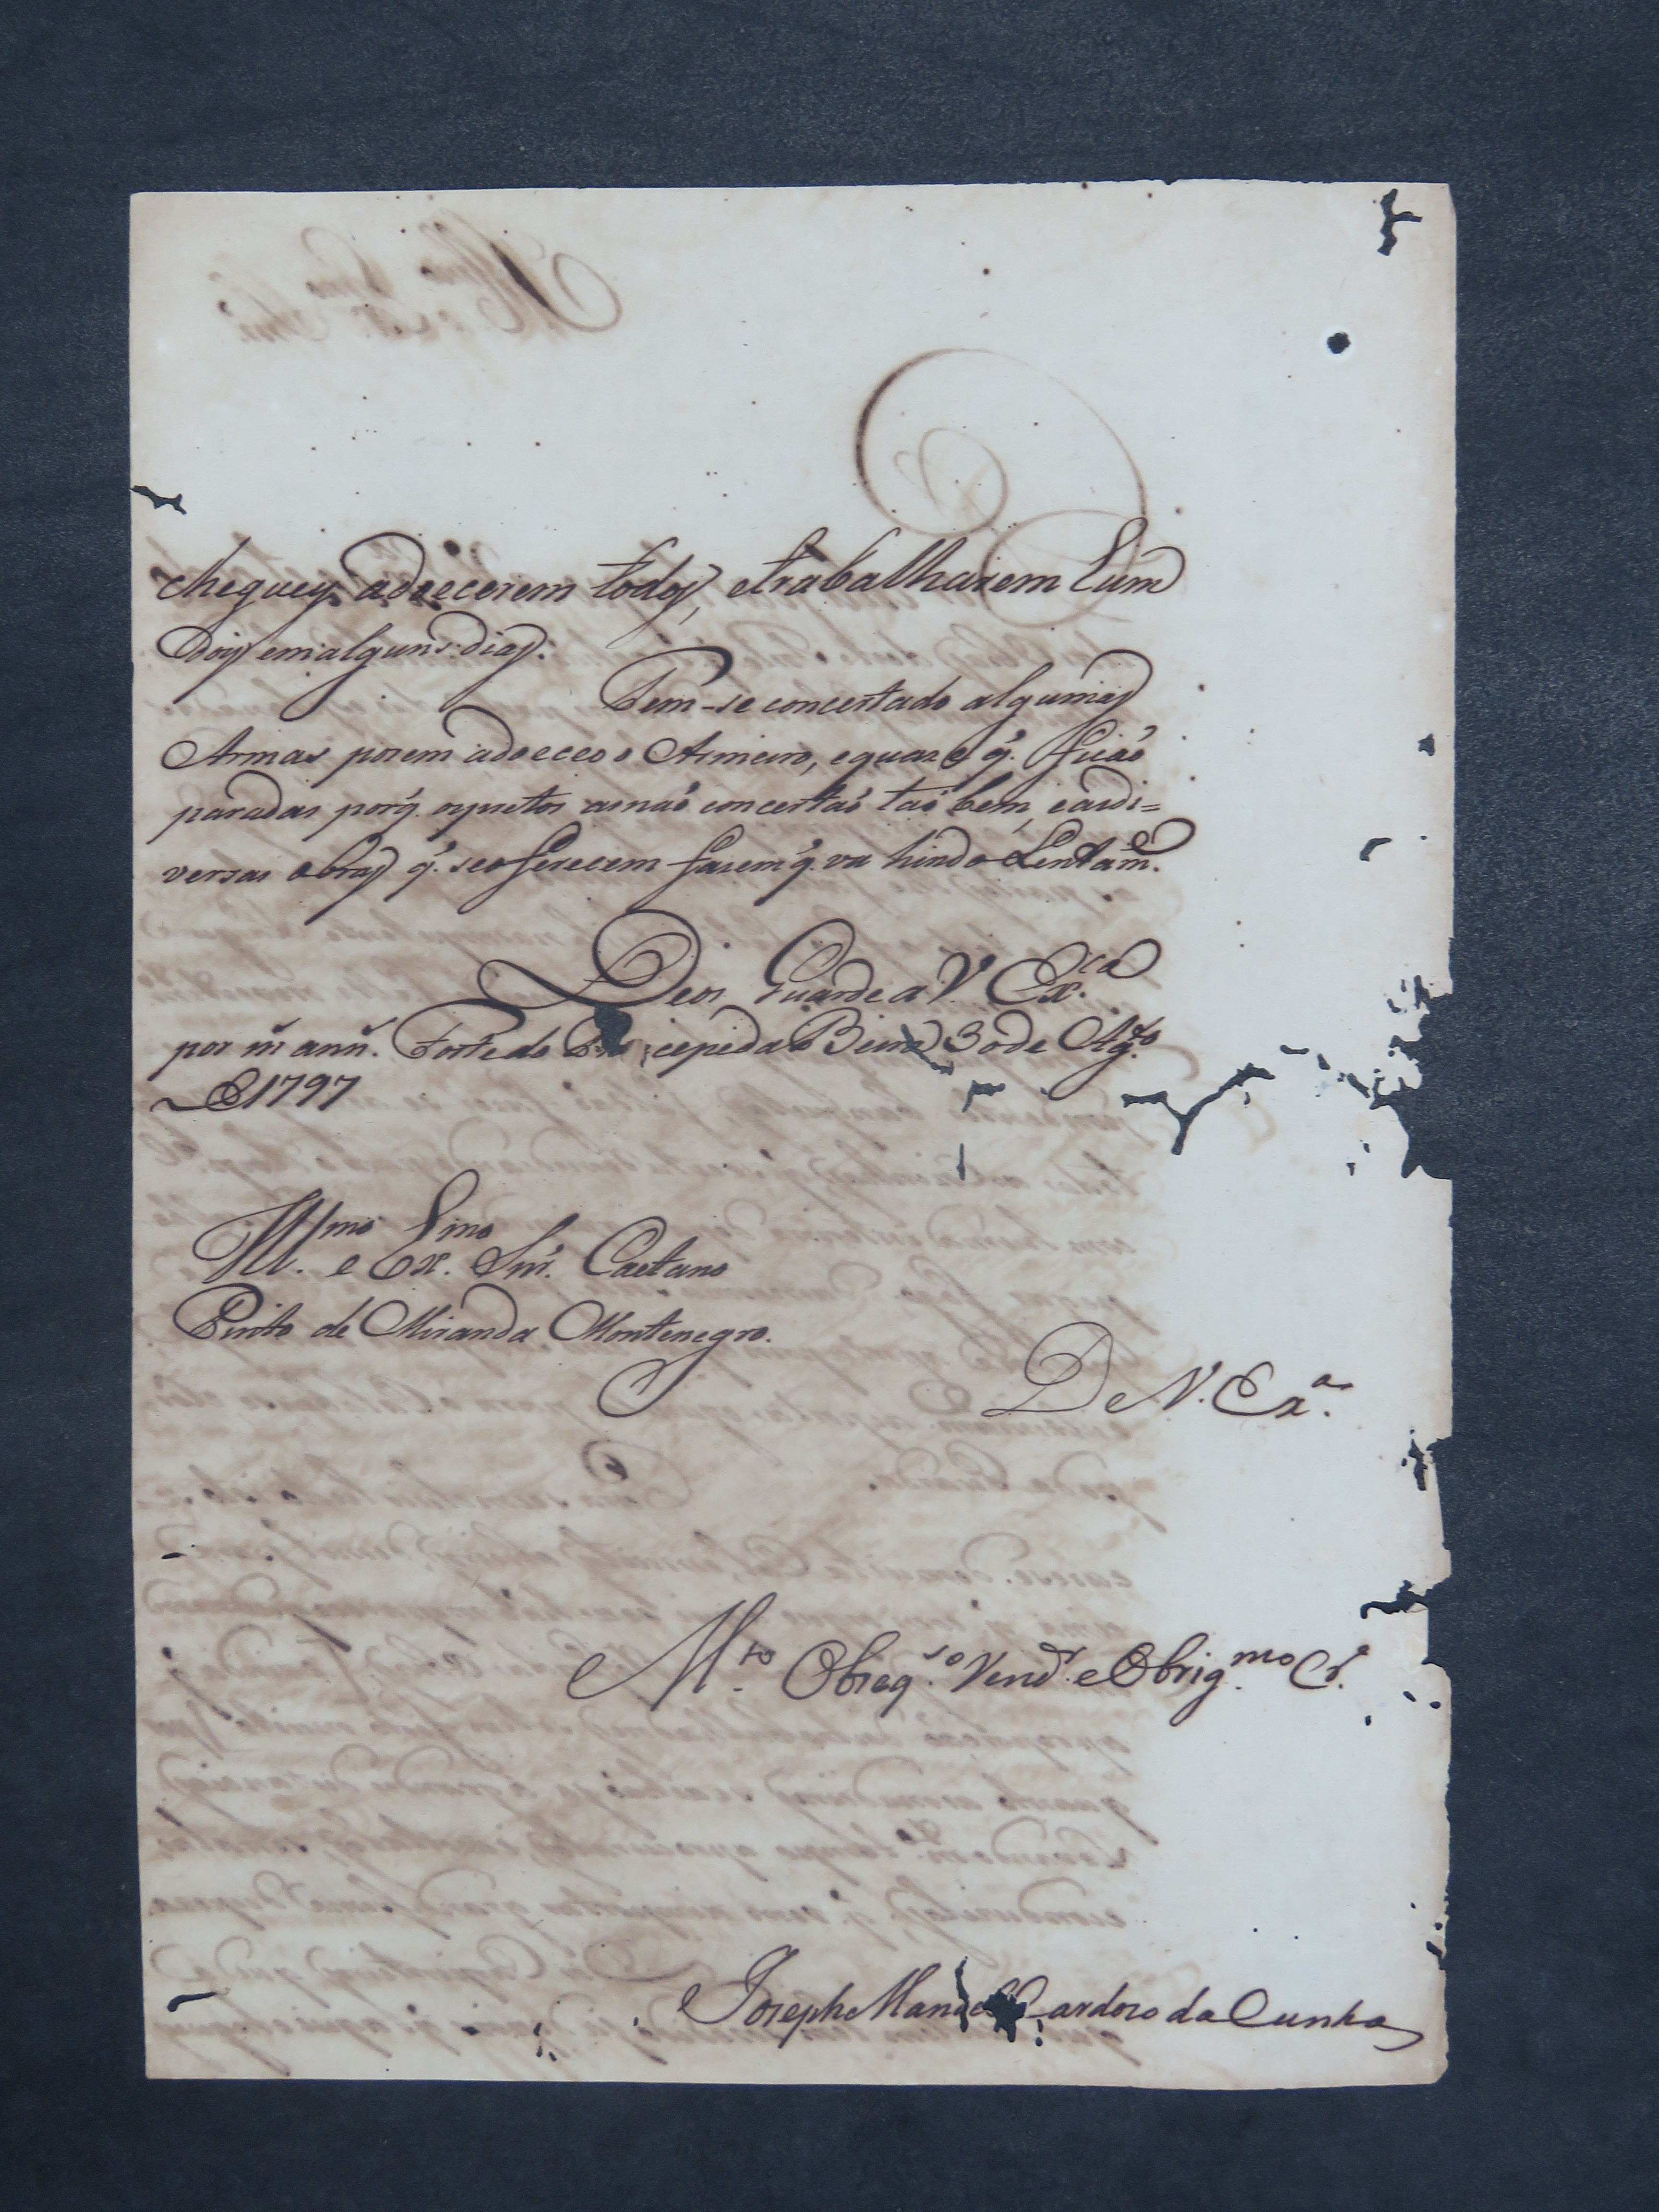 cheguey adoecerem todos, etrabalharem hum
Dois em alguns dias.
Tem-se concertado algumas
Armas porem adoeceo o Armeiro, e quaze q̃. ficaõ
paradas porq̃. os pretos as naõ concertaõ taõ bem, e as di=
versas obras q̃. se oferecem fasem q̃. va hindo Lentam.
Deos Guarde a V. Ex.ca
por m̃ ann̄. Forte do Principe da Beira 30 de Ag.to
de 1797
Ill.mo e Ex.mo Snr̃. Caetano
Pinto de Miranda Montenegro.
De V. Ex.a
M.to Obseq.so Vend.r e Obrig.mo Cr.
Joseph Manoel Cardoso da Cunha